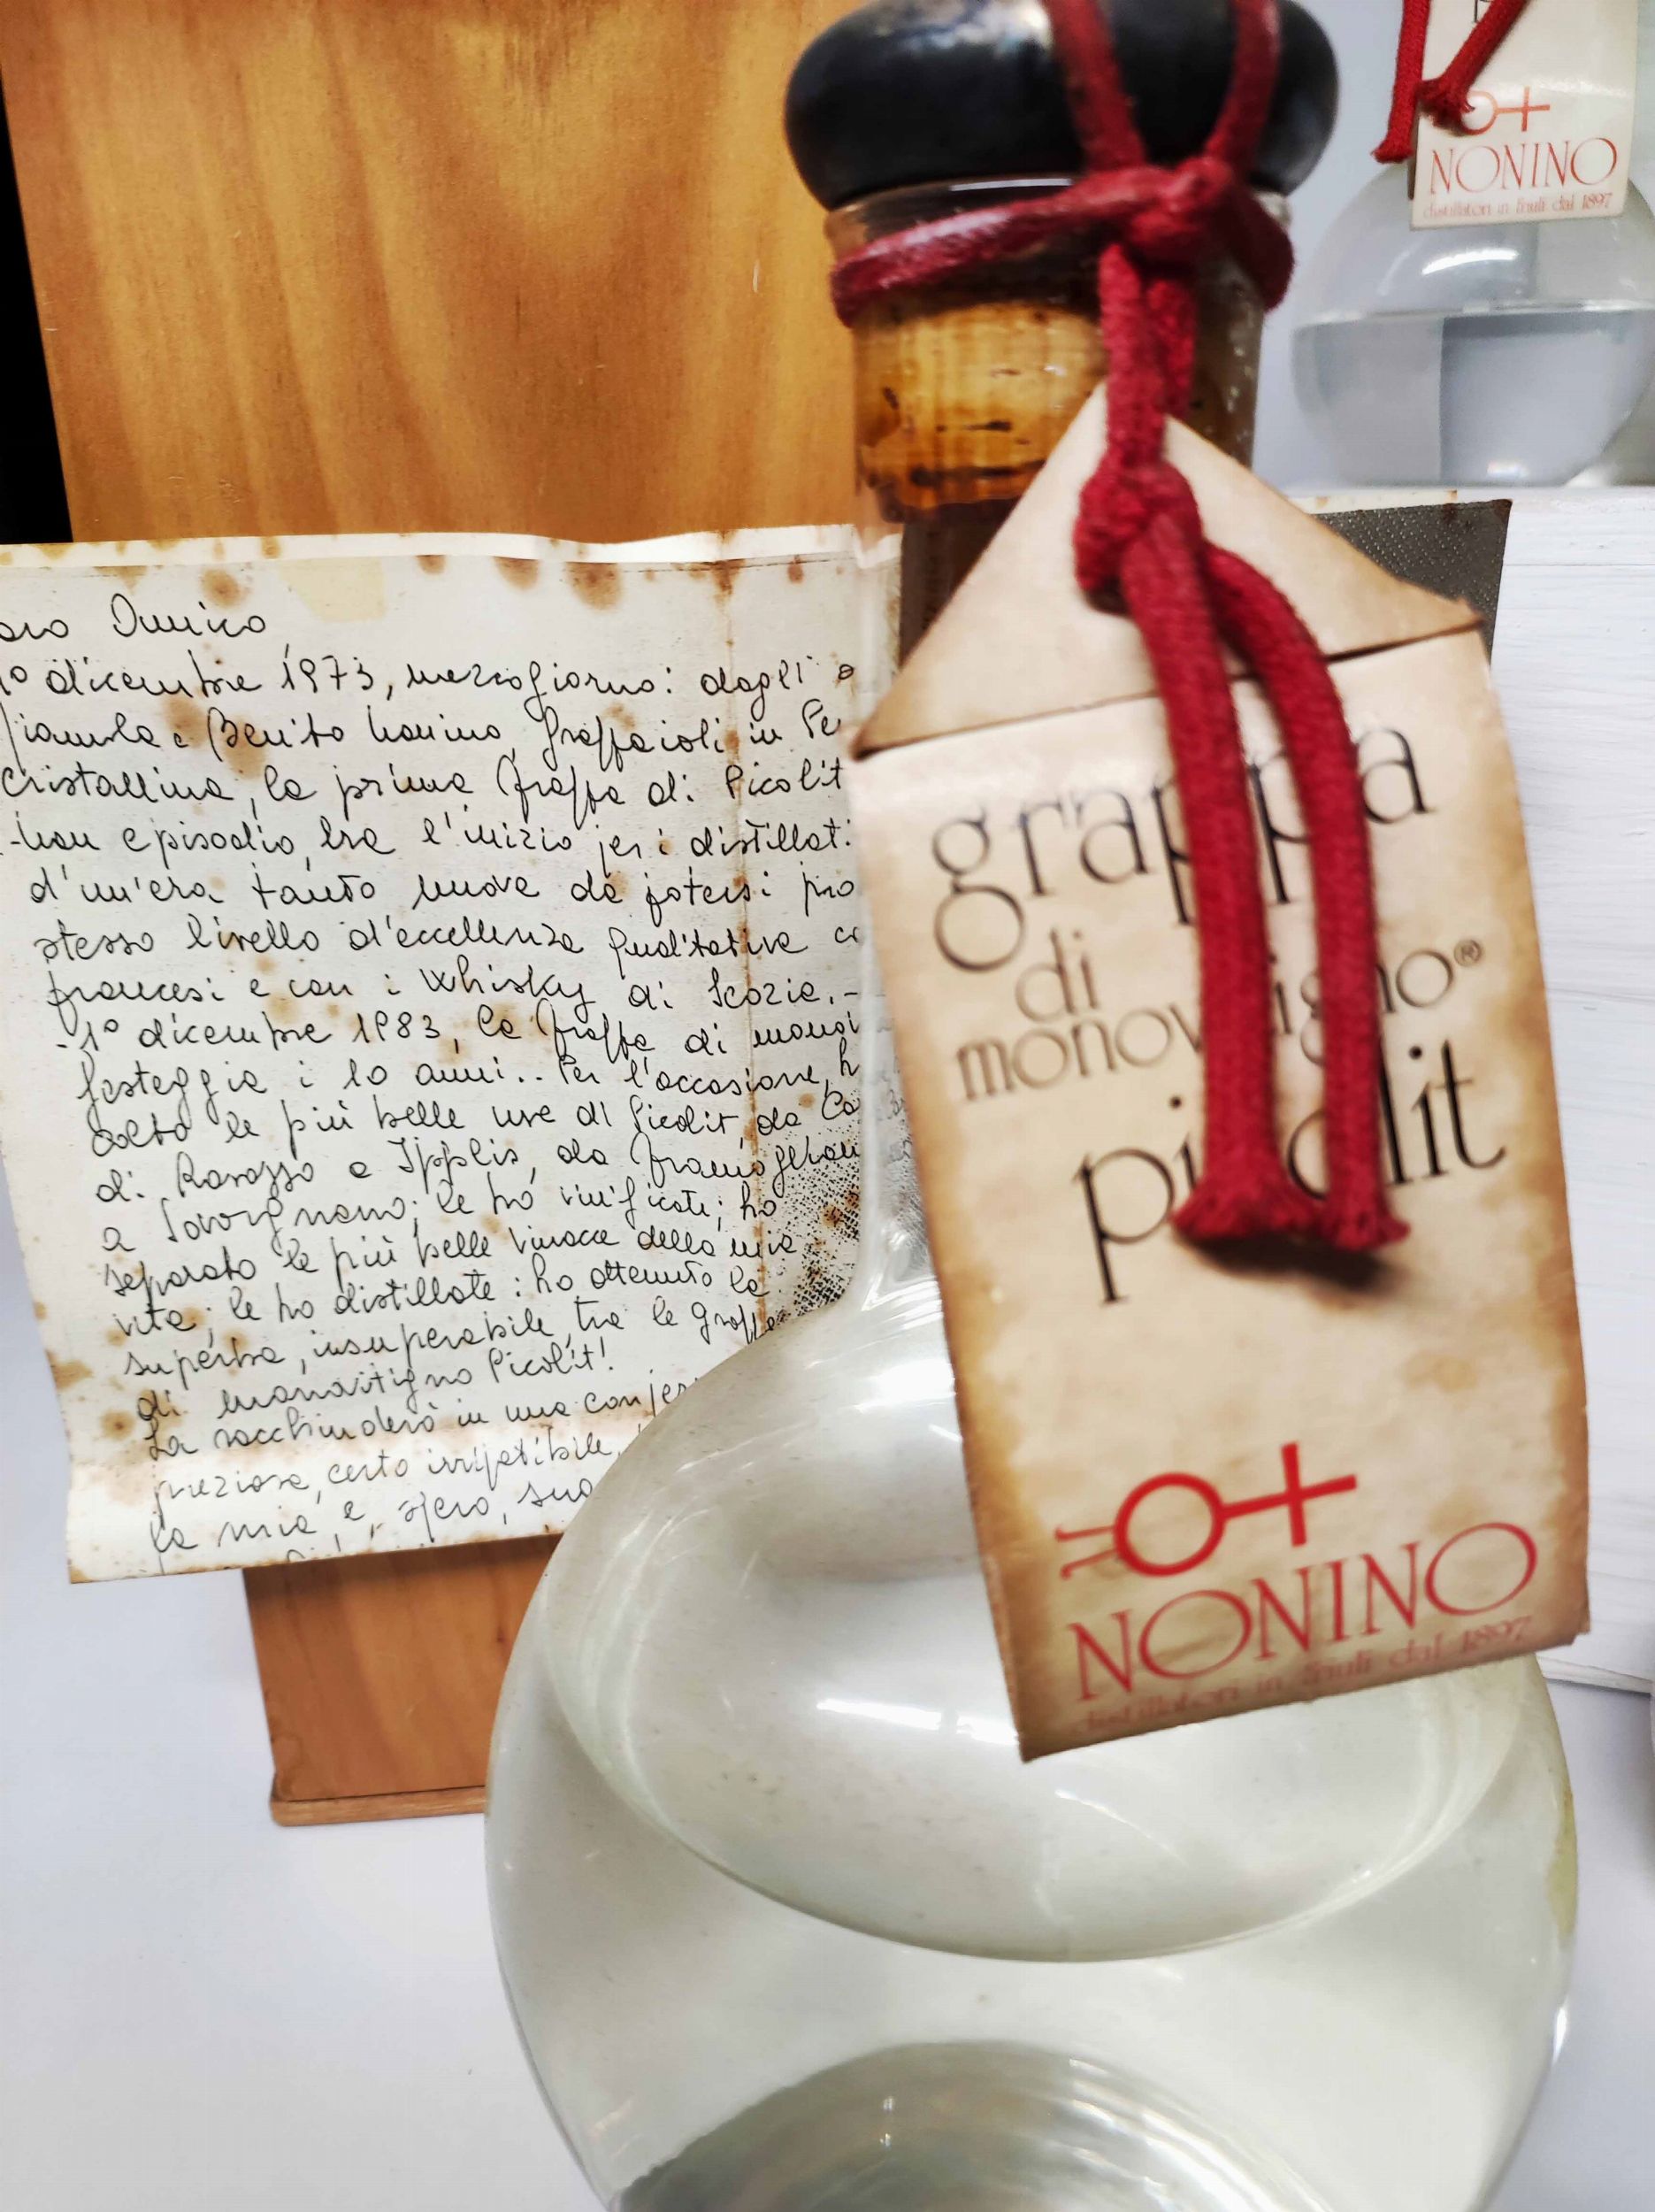 Amico
1° dicembre 1973, mezzogiorno: dagli a
Giannola e Benito Nonino, grappaioli in Per
cristallina, la prima Grappa di Picolit
-non episodio, ma l'inizio per i distillati
d'un'era tanto nuova da potersi
stesso livello d'eccellenza qualitativa
francesi e con i Whisky di Scozia.-
-1° dicembre 1983, la Grappa di monovi
festeggia i 10 anni.. Per l'occasione, h
colto le più belle uve di Picolit, da
di Rosazzo a Ipplis, da Gramogliano
a Savorgnano; le ho vinificate; ho
separato le più belle vinacce della mia
vita; le ho distillate: ho ottenuto la
superba, insuperabile, tra le Grappe
di monovitigno Picolit!
La racchiuderò in una
preziosa, certo irripetibile,
la mia, e, spero, sua
grappa
di
monovitigno®
picolit
NONINO
distillatori in friuli dal 1897
NONINO
distillatori in friuli dal 1897